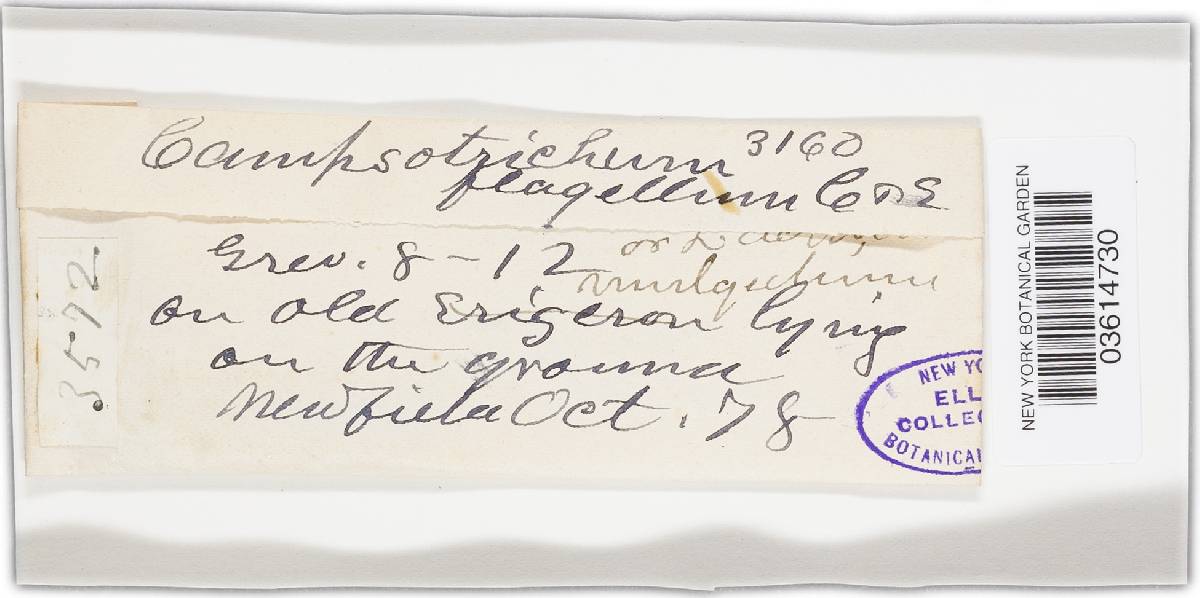 Campsotrichum 3160
flagellum C & E
Grev. 8-12 or
on old Erigeron lying
on the ground
Newfield Oct. 78
3572
NEW YO
ELL
COLLEC
BOTANICAL
NEW YORK BOTANICAL GARDEN
03614730